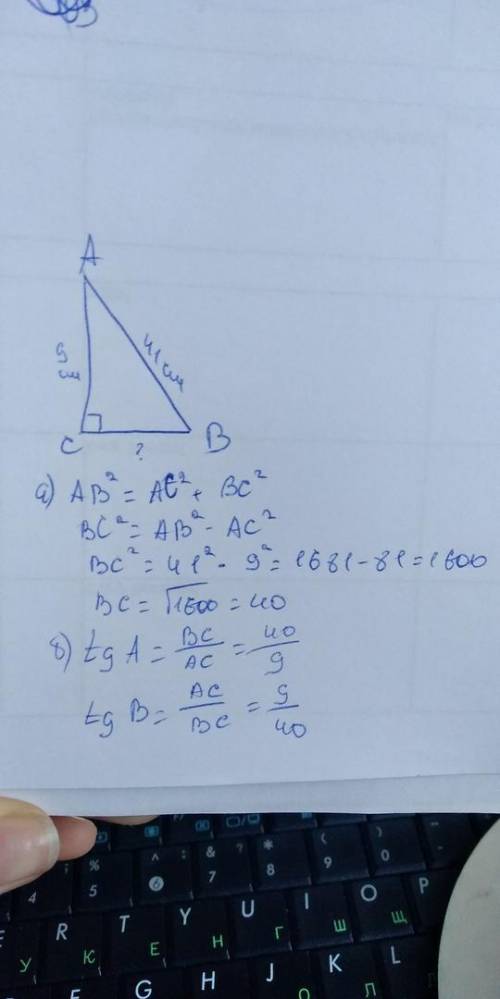 A
9 см
41 см
C
?
B
а) AB² = AC² + BC²
BC² = AB² - AC²
BC² = 41² - 9² = 1681 - 81 = 1600
BC = √1600 = 40
б) tg A = BC/AC = 40/9
tg B = AC/BC = 9/40
% ^ : & ? * ( ) -
4 5 6 7 8 9 0
R T Y U I O P
У К Е Н Г Ш Щ
F G H J K L
О Л